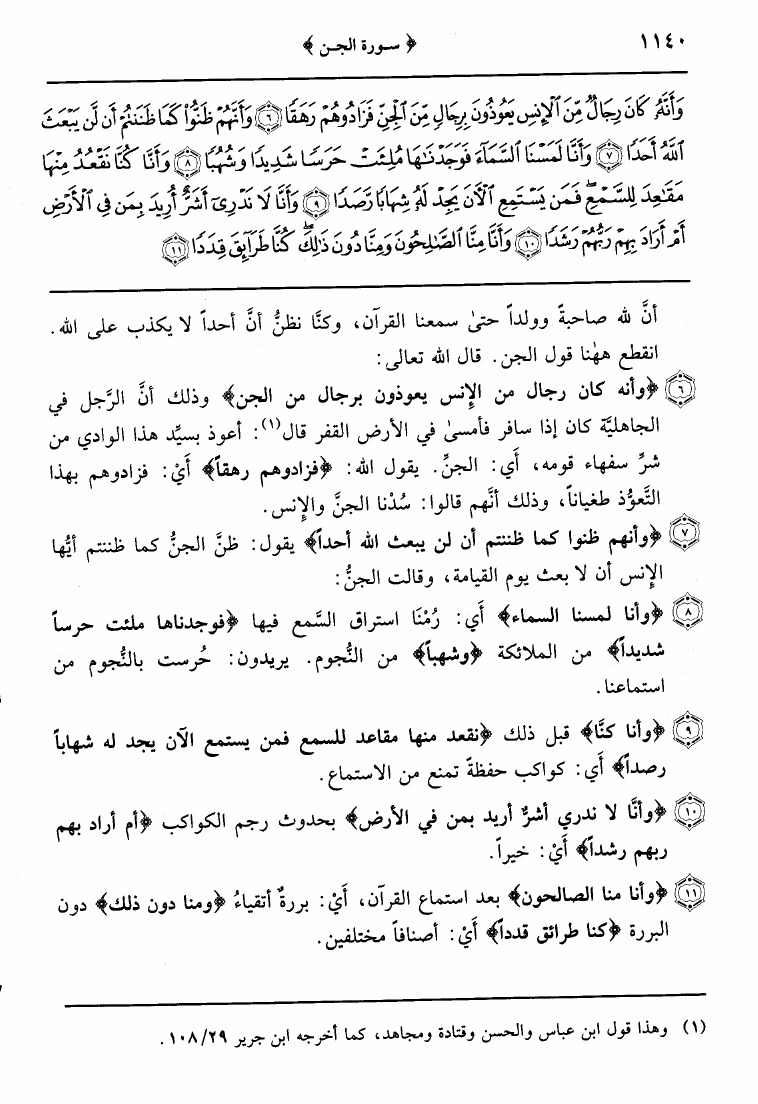 ١١٤٠
﴿ سورة الجن ﴾
وَأَنَّهُۥ كَانَ رِجَالٌ مِّنَ ٱلْإِنسِ يَعُوذُونَ بِرِجَالٍ مِّنَ ٱلْجِنِّ فَزَادُوهُمْ رَهَقًا ٦ وَأَنَّهُمْ ظَنُّوا۟ كَمَا ظَنَنتُمْ أَن لَّن يَبْعَثَ
ٱللَّهُ أَحَدًا ٧ وَأَنَّا لَمَسْنَا ٱلسَّمَآءَ فَوَجَدْنَٰهَا مُلِئَتْ حَرَسًا شَدِيدًا وَشُهُبًا ٨ وَأَنَّا كُنَّا نَقْعُدُ مِنْهَا
مَقَٰعِدَ لِلسَّمْعِ ۖ فَمَن يَسْتَمِعِ ٱلْآنَ يَجِدْ لَهُۥ شِهَابًا رَّصَدًا ٩ وَأَنَّا لَا نَدْرِىٓ أَشَرٌّ أُرِيدَ بِمَن فِى ٱلْأَرْضِ
أَمْ أَرَادَ بِهِمْ رَبُّهُمْ رَشَدًا ١٠ وَأَنَّا مِنَّا ٱلصَّٰلِحُونَ وَمِنَّا دُونَ ذَٰلِكَ ۖ كُنَّا طَرَآئِقَ قِدَدًا ١١
أنَّ لله صاحبةً وولداً حتىٰ سمعنا القرآن، وكنَّا نظنُّ أنَّ أحداً لا يكذب على الله.
انقطع هٰهنا قول الجن. قال الله تعالى:
٦ ﴿وأنه كان رجال من الإنس يعوذون برجال من الجن﴾ وذلك أنَّ الرَّجل في
الجاهليَّة كان إذا سافر فأمسىٰ في الأرض القفر قال(١): أعوذ بسيِّد هذا الوادي من
شرِّ سفهاء قومه، أي: الجنِّ. يقول الله: ﴿فزادوهم رهقاً﴾ أيْ: فزادوهم بهذا
التَّعوُّذ طغياناً، وذلك أنَّهم قالوا: سُدْنا الجنَّ والإِنس.
٧ ﴿وأنهم ظنوا كما ظننتم أن لن يبعث الله أحداً﴾ يقول: ظنَّ الجنُّ كما ظننتم أيُّها
الإِنس أن لا بعث يوم القيامة، وقالت الجنُّ:
٨ ﴿وأنا لمسنا السماء﴾ أي: رُمْنَا استراق السَّمع فيها ﴿فوجدناها ملئت حرساً
شديداً﴾ من الملائكة ﴿وشهباً﴾ من النُّجوم. يريدون: حُرست بالنُّجوم من
استماعنا.
٩ ﴿وأنا كنَّا﴾ قبل ذلك ﴿نقعد منها مقاعد للسمع فمن يستمع الآن يجد له شهاباً
رصداً﴾ أي: كواكب حفظةً تمنع من الاستماع.
١٠ ﴿وأنَّا لا ندري أشرٌّ أريد بمن في الأرض﴾ بحدوث رجم الكواكب ﴿أم أراد بهم
ربهم رشداً﴾ أيْ: خيراً.
١١ ﴿وأنا منا الصالحون﴾ بعد استماع القرآن، أيْ: بررةٌ أتقياءُ ﴿ومنا دون ذلك﴾ دون
البررة ﴿كنا طرائق قدداً﴾ أيْ: أصنافاً مختلفين.
(١) وهذا قول ابن عباس والحسن وقتادة ومجاهد، كما أخرجه ابن جرير ١٠٨/٢٩.